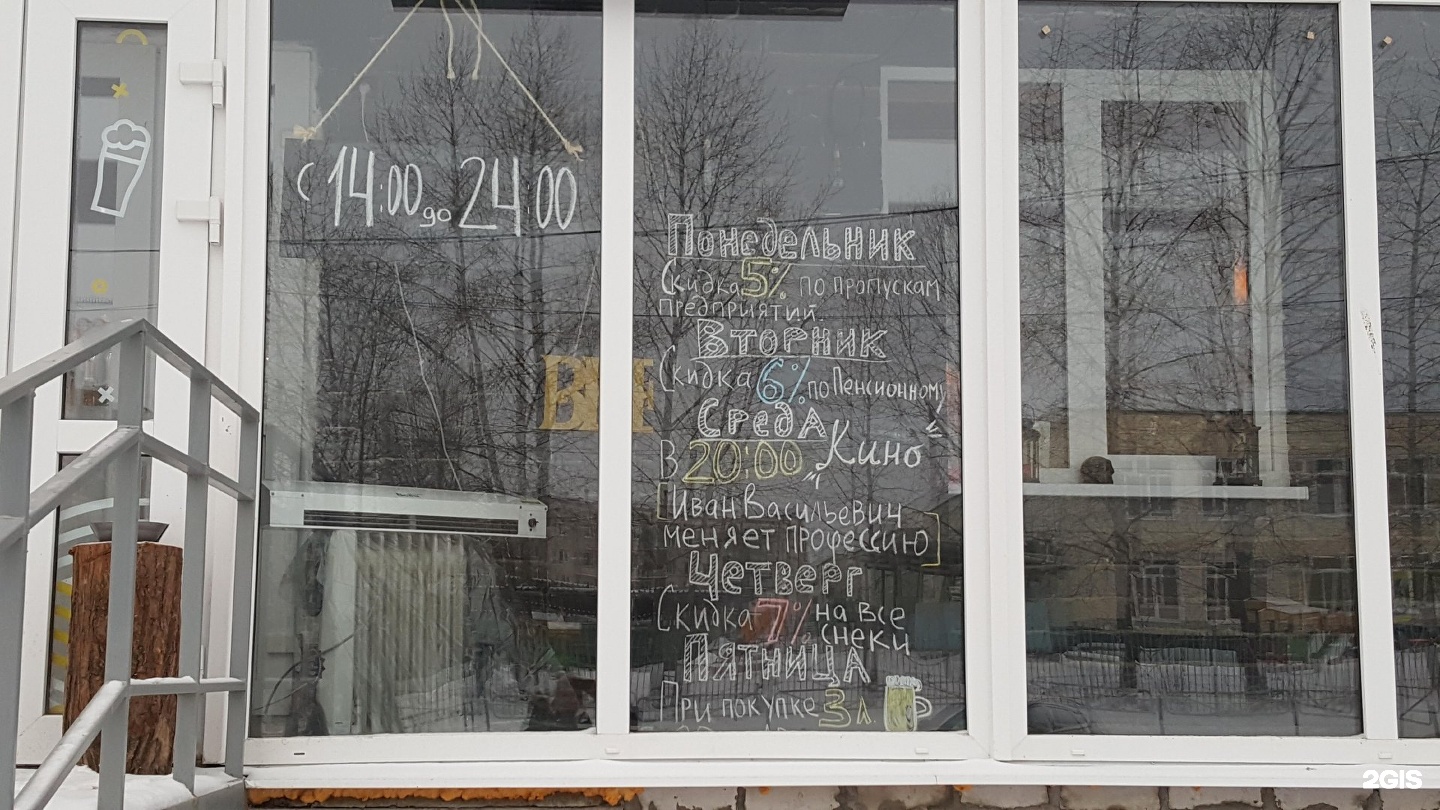 с 14:00 до 24:00
Понедельник
Скидка 5% по пропускам
предприятий.
Вторник
Скидка 6% по Пенсионному
Среда
В 20:00 "Кино"
[Иван Васильевич
меняет Профессию]
Четверг
Скидка 7% на все
снеки
Пятница
При покупке 3 л.
2GIS